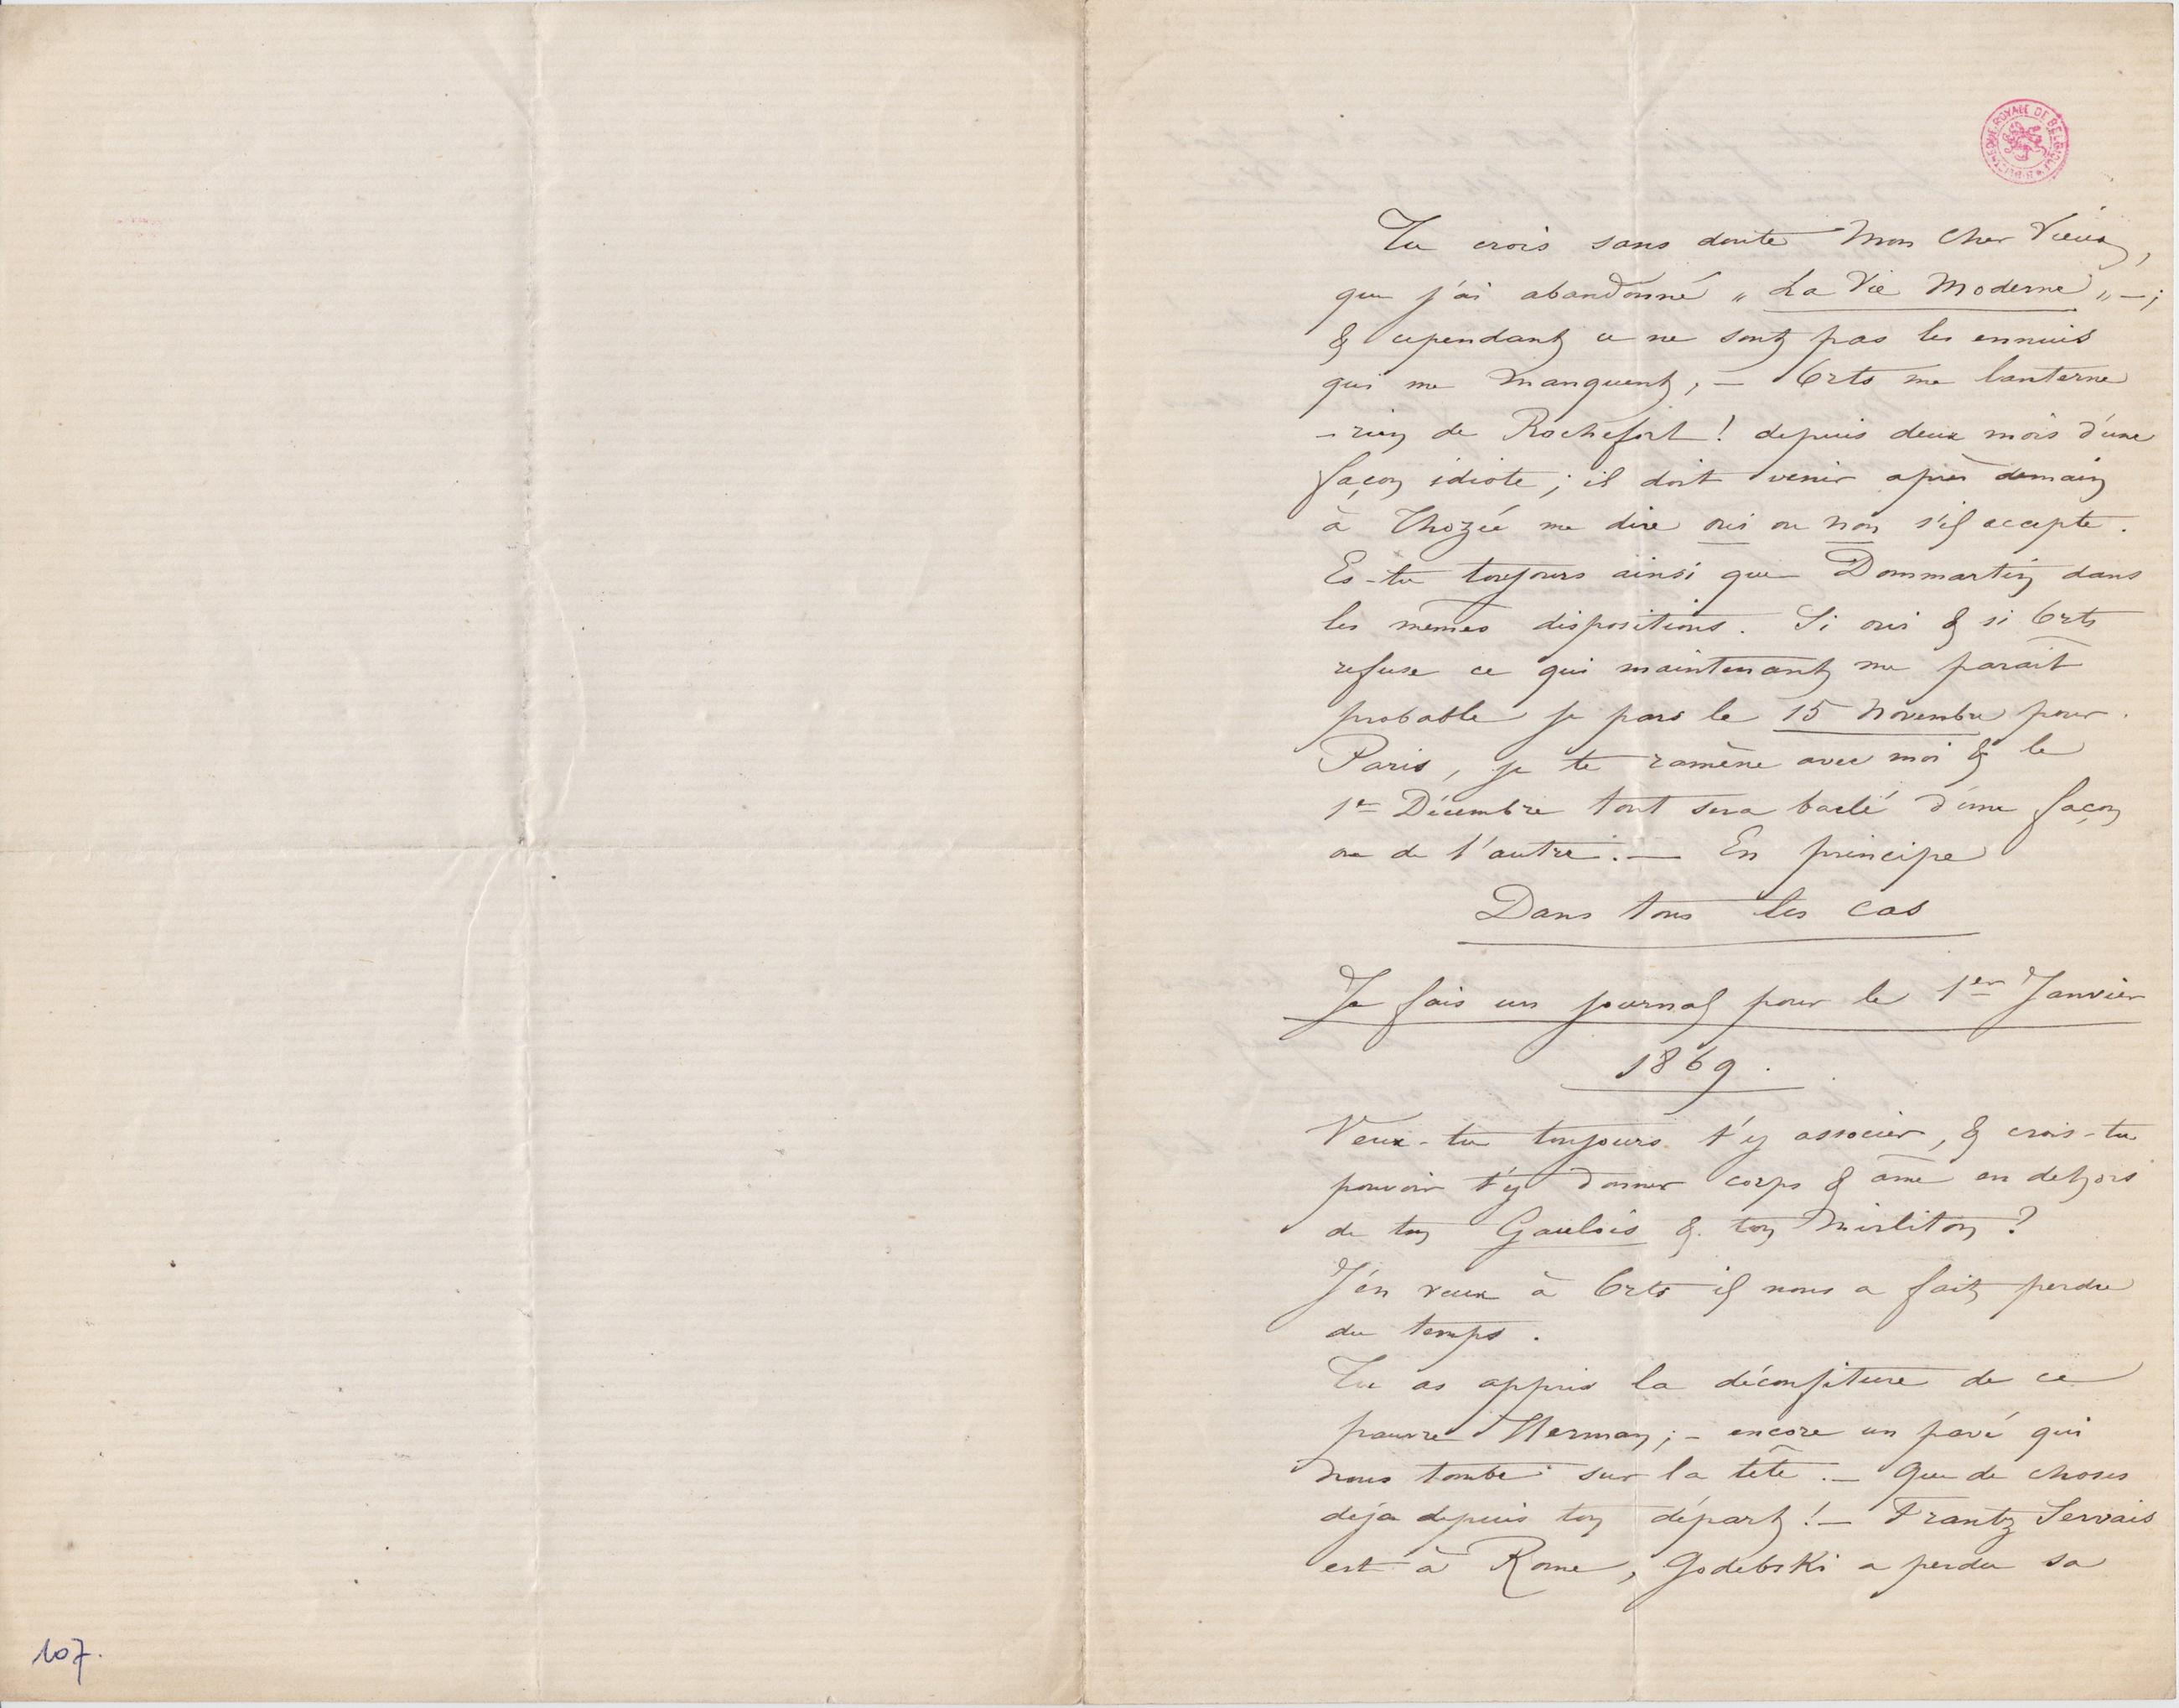 BIBLIOTHÈQUE ROYALE DE BELGIQUE
Tu crois sans doute Mon Cher Vieux,
que j'ai abandonné „ La Vie Moderne „ – ;
& cependant ce ne sont pas les ennuis
qui me manquent, – Orts me lanterne
– rien de Rochefort ! depuis deux mois d'une
façon idiote ; il doit venir après demain
à Thozée me dire oui ou non s'il accepte.
Es-tu toujours ainsi que Dommartin dans
les mêmes dispositions. Si oui & si Orts
refuse ce qui maintenant me parait
probable je pars le 15 Novembre pour
Paris, je te ramène avec moi & le
1er Décembre tout sera baclé d'une façon
ou de l'autre. — En principe
Dans tous les cas
Je fais un journal pour le 1er Janvier
1869.
Veux-tu toujours t'y associer, & crois-tu
pouvoir t'y donner corps & âme en dehors
de ton Gaulois & ton Mirliton ?
J'en veux à Orts il nous a fait perdre
du temps.
Tu as appris la déconfiture de ce
pauvre Herman ; – encore un pavé qui
nous tombe sur la tête. – Que de choses
déja depuis ton départ ! – Frantz Servais
est à Rome, Godebski a perdu sa
107.